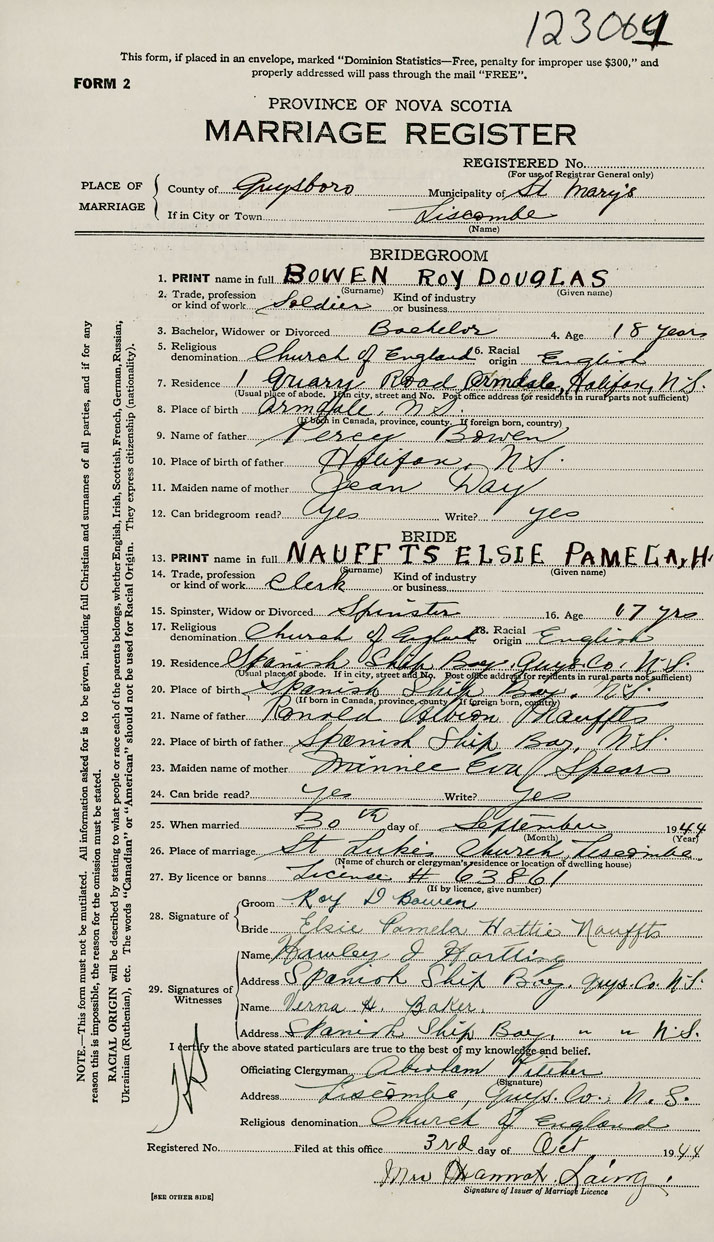 123064
This form, if placed in an envelope, marked "Dominion Statistics—Free, penalty for improper use $300," and
properly addressed will pass through the mail "FREE".
FORM 2
PROVINCE OF NOVA SCOTIA
MARRIAGE REGISTER
REGISTERED No.
(For use of Registrar General only)
PLACE OF MARRIAGE
County of Guysboro Municipality of St Mary's
If in City or Town Liscombe
(Name)
BRIDEGROOM
1. PRINT name in full BOWEN ROY DOUGLAS
(Surname) (Given name)
2. Trade, profession or kind of work Soldier Kind of industry or business
3. Bachelor, Widower or Divorced Bachelor 4. Age 18 years
5. Religious denomination Church of England 6. Racial origin English
7. Residence 1 Quary Road Armdale, Halifax, N.S.
(Usual place of abode. If in city, street and No. Post office address for residents in rural parts not sufficient)
8. Place of birth Armdale, N.S.
(If born in Canada, province, county. If foreign born, country)
9. Name of father Percy Bowen
10. Place of birth of father Halifax, N.S.
11. Maiden name of mother Jean Day
12. Can bridegroom read? Yes Write? yes
BRIDE
13. PRINT name in full NAUFFTS ELSIE PAMELA, H.
(Surname) (Given name)
14. Trade, profession or kind of work Clerk Kind of industry or business
15. Spinster, Widow or Divorced Spinster 16. Age 17 yrs
17. Religious denomination Church of England 18. Racial origin English
19. Residence Spanish Ship Bay, Guys. Co. N.S.
(Usual place of abode. If in city, street and No. Post office address for residents in rural parts not sufficient)
20. Place of birth Spanish Ship Bay, N.S.
(If born in Canada, province, county. If foreign born, country)
21. Name of father Ronald Albion Nauffts
22. Place of birth of father Spanish Ship Bay, N.S.
23. Maiden name of mother Minnie Eva Spears
24. Can bride read? yes Write? yes
25. When married 30th day of September 1944
(Month) (Year)
26. Place of marriage St Luke's Church, Liscombe
(Name of church or clergyman's residence or location of dwelling house)
27. By licence or banns License # 63861
(If by licence, give number)
28. Signature of
Groom Roy D Bowen
Bride Elsie Pamela Hattie Nauffts
29. Signatures of Witnesses
Name Hawley J Hartling
Address Spanish Ship Bay, Guys. Co. N.S.
Name Verna H. Baker.
Address Spanish Ship Bay, " " N.S.
I certify the above stated particulars are true to the best of my knowledge and belief.
Officiating Clergyman Abraham
(Signature)
Address Liscombe, Guys. Co., N.S.
Religious denomination Church of England
Registered No. Filed at this office 3rd day of Oct 1944
Mrs Hannah Laing
Signature of Issuer of Marriage Licence
[SEE OTHER SIDE]
NOTE.—This form must not be mutilated. All information asked for is to be given, including full Christian and surnames of all parties, and if for any
reason this is impossible, the reason for the omission must be stated.
RACIAL ORIGIN will be described by stating to what people or race each of the parents belongs, whether English, Irish, Scottish, French, German, Russian,
Ukrainian (Ruthenian), etc. The words "Canadian" or "American" should not be used for Racial Origin. They express citizenship (nationality).